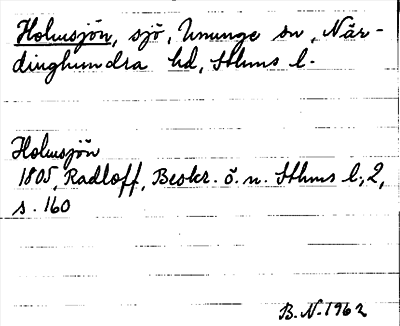 Holmsjön, sjö, Ununge sn, När-
dinghundra hd, Sthms l.
Holmsjön
1805, Radloff, Beskr. ö. n. Sthms l., 2,
s. 160
B.N. 1962